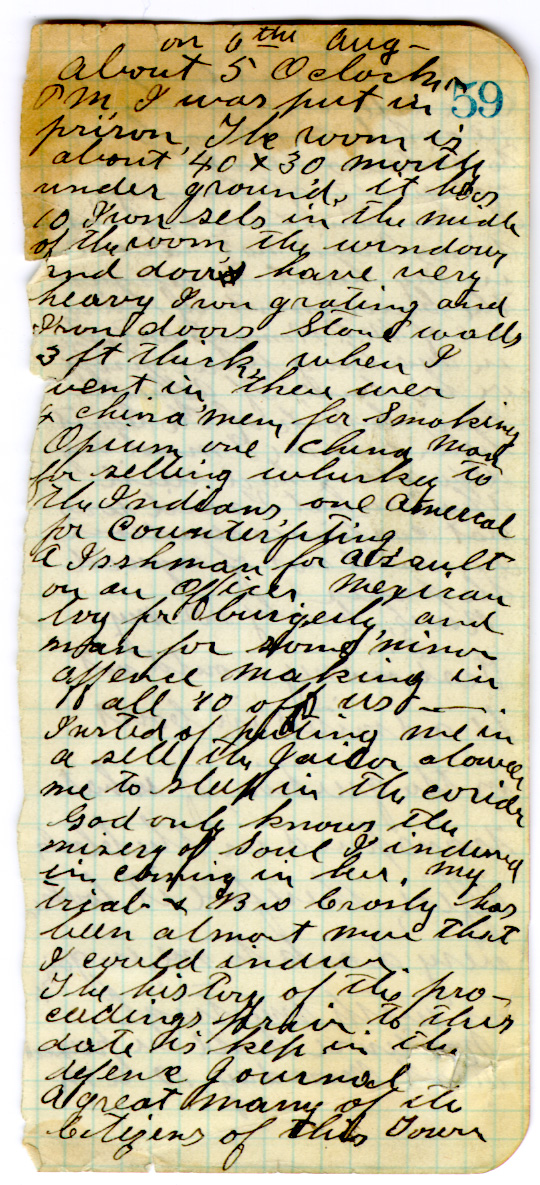 on 6th Aug-
About 5 O clock
59
P M I was put in
prison, The room is
about 40 x 30 mostly
under ground, it has
10 Iron sels in the midle
of the room the windows
and doors have very
heavy Iron grating and
Iron doors Stone walls
3 ft thick, when I
went in, their wer
4 china men for Smoking
Opium one China man
for selling whiskey to
the Indians one American
for Counterfiting
A Irishman for assault
on an Officer Mexican
boy for burgerly and
man for some minor
offence making in
all 10 off us —
Insted of putting me in
a sell the Jailor alowed
me to sleep in the corider
God only knows the
misery of Soul I indured
in coming in her. My
trial & Bro Crosby has
been almost more that
I could indure.
The history of the pro-
ceadings prair to this
date is kep in the
defence Journal
A great many of the
Citizens of this Town